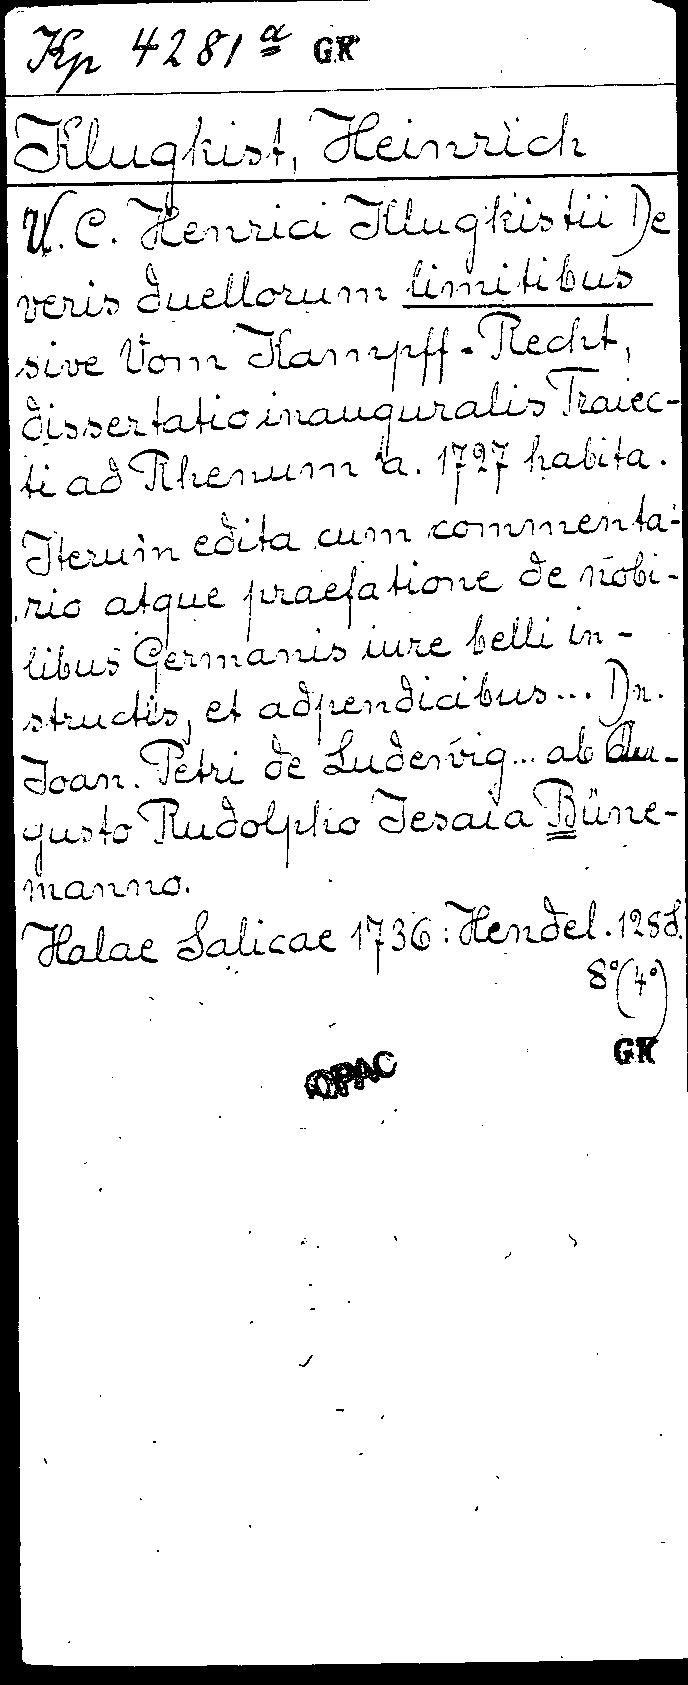 Kp 4281 a GK
Klugkist, Heinrich
V. C. Henrici Klugkistii De
veris duellorum limitibus
sive Vom Kampff-Recht,
dissertatio inauguralis Traiec-
ti ad Rhenum a. 1727 habita.
Iterum edita cum commenta-
rio atque praefatione de nobi-
libus Germanis iure belli in-
structis, et adpendicibus... Dn.
Joan. Petri de Ludewig... ab Au-
gusto Rudolpho Jesaia Büne-
manno.
Halae Salicae 1736: Hendel. 128 S.
8° (4°)
GK
OPAC